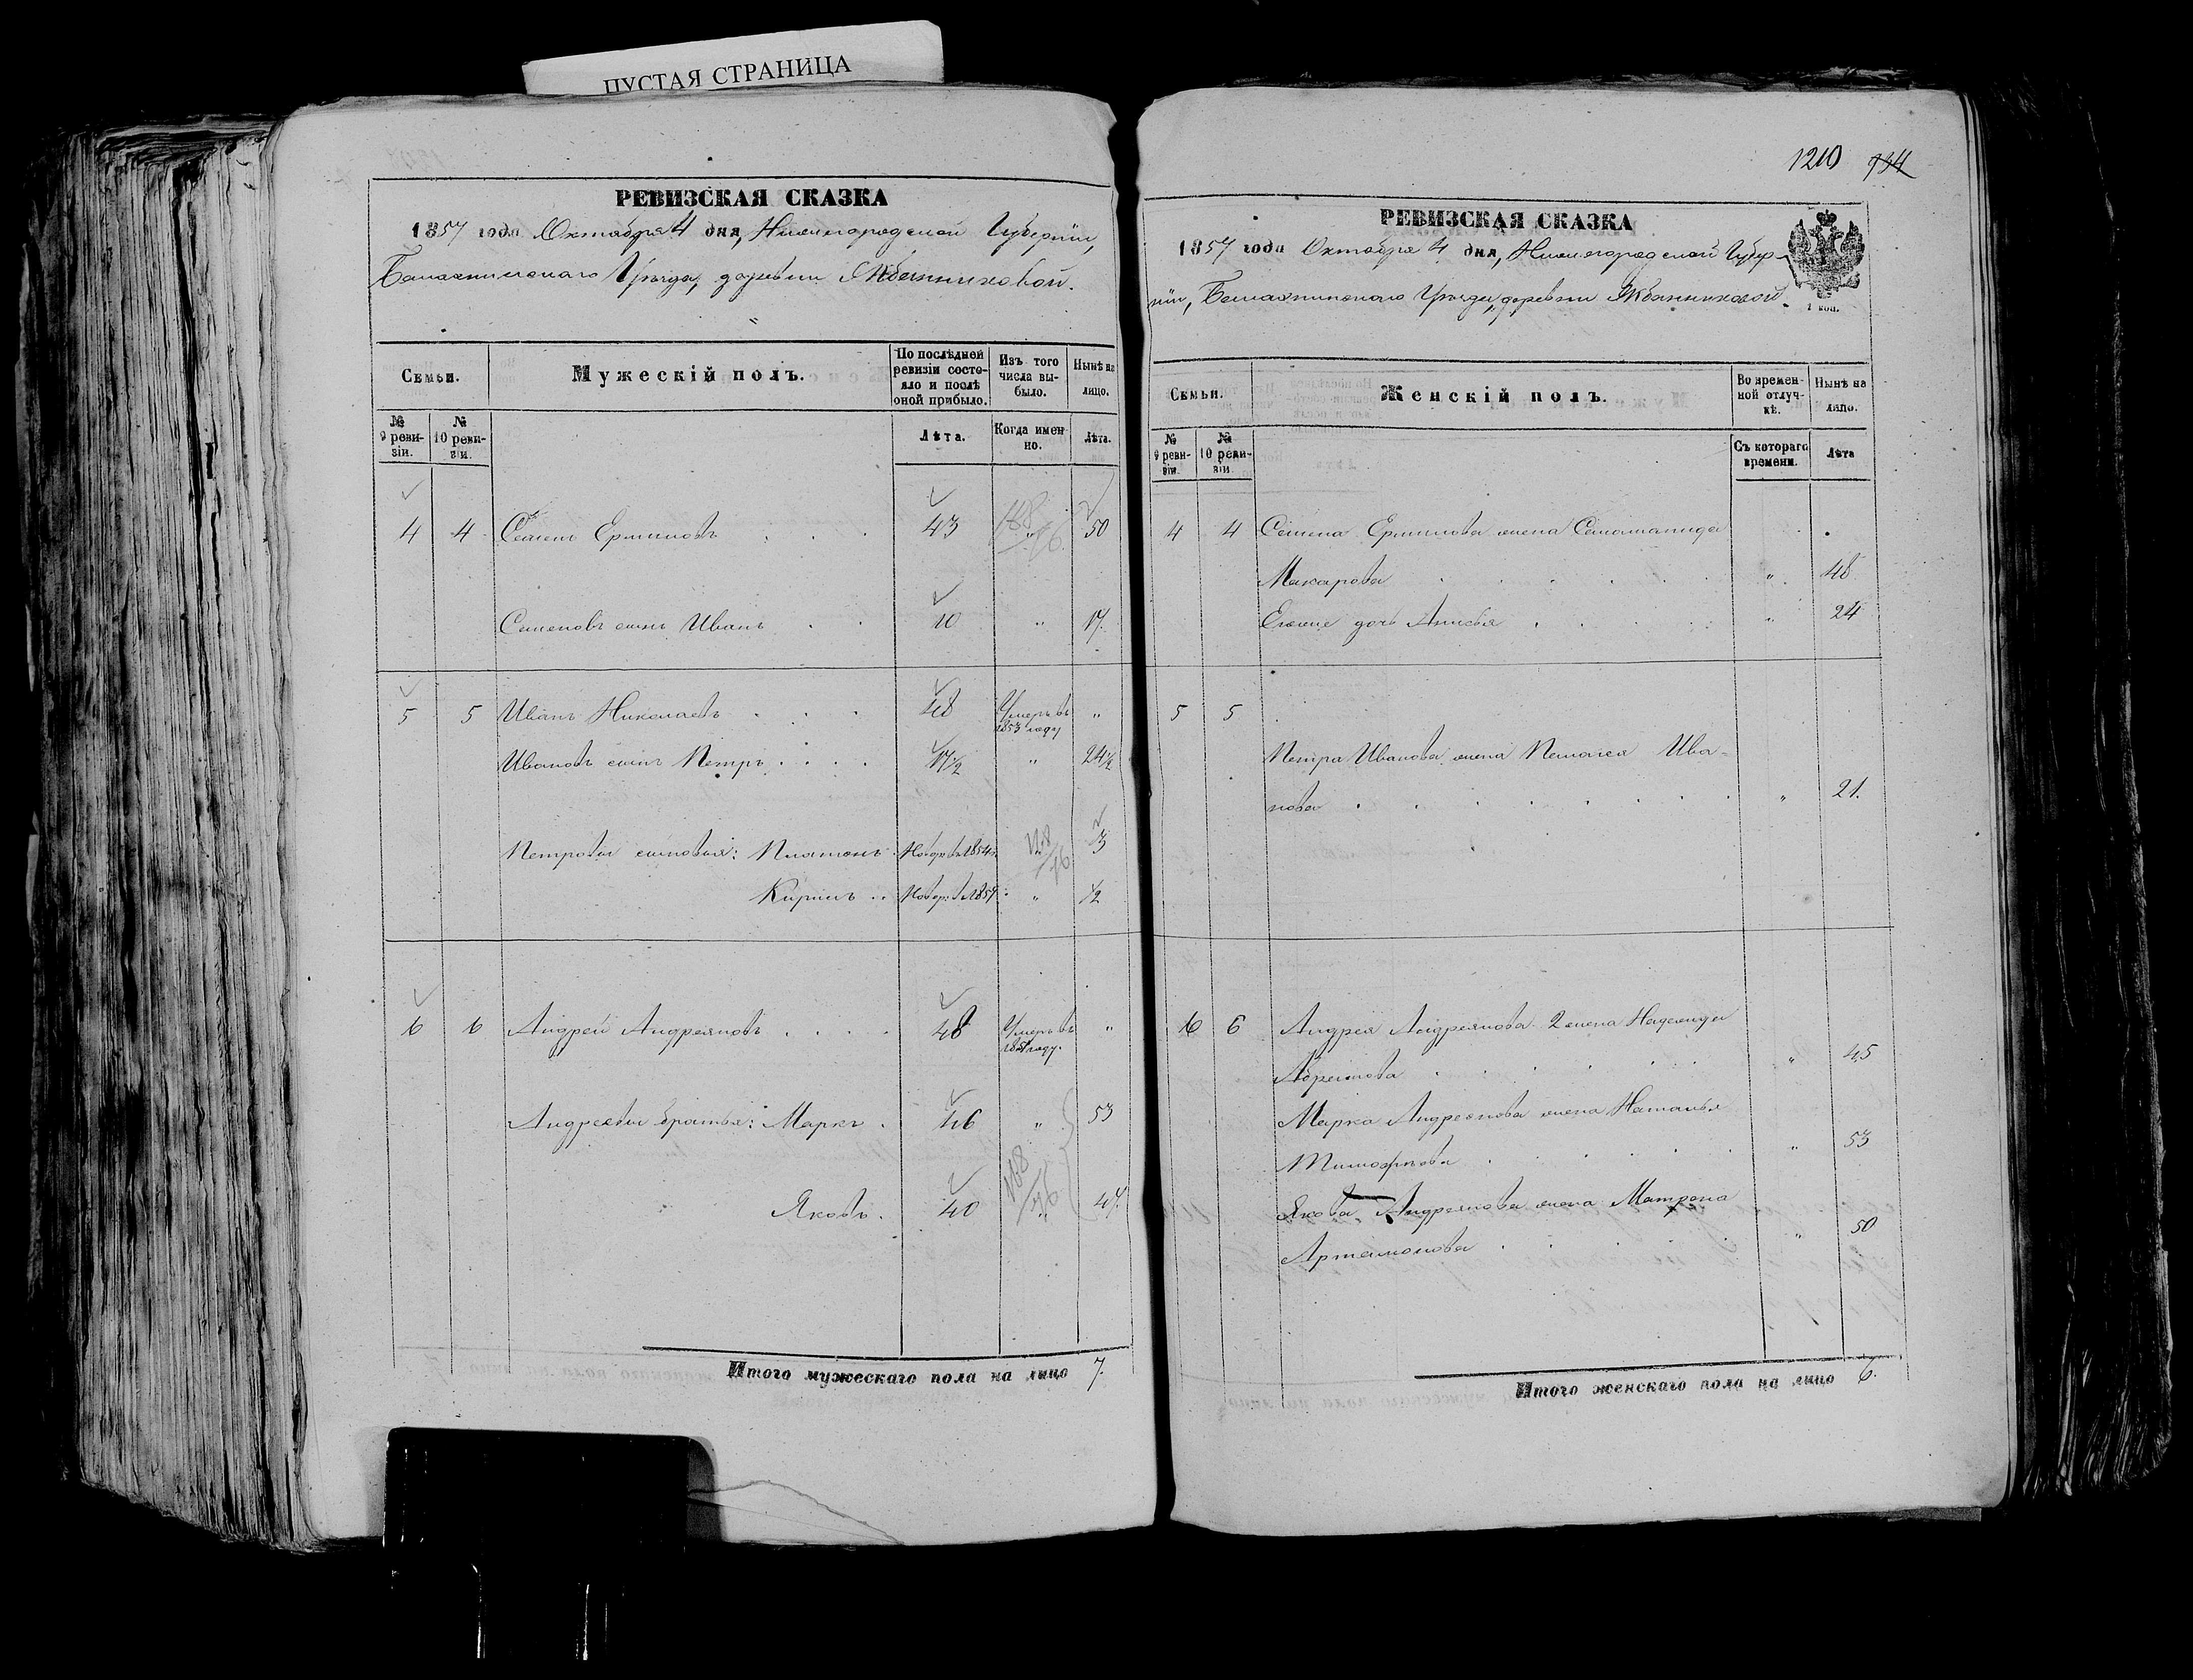 ПУСТАЯ СТРАНИЦА
РЕВИЗСКАЯ СКАЗКА
1857 года Октября 4 дня, Нижегородской Губерніи,
Балахнинскаго Уѣзда, деревни
Семьи.
Мужескій полъ.
По послѣдней ревизіи состояло и послѣ оной прибыло.
Изъ того числа выбыло.
Нынѣ на лицо.
№ 9 ревизіи.
№ 10 ревизіи.
Лѣта.
Когда именно.
Лѣта.
4 4 Семенъ Ермиловъ 43 " 50
Семеновъ сынъ Иванъ 10 " 17.
5 5 Иванъ Николаевъ 48 Умеръ въ 1853 году "
Ивановъ сынъ Петръ 17½ " 24½
Петровы сыновья: Платонъ Новор. въ 1854 3
Кирилъ Новор: въ 1857 " ½
6 6 Андрей Андреяновъ 48 Умеръ въ году. "
Андреевы братья: Маркъ 46 " 53
Яковъ. 40 " 47.
Итого мужескаго пола на лицо 7.
1210 734
РЕВИЗСКАЯ СКАЗКА
1857 года Октября 4 дня, Нижегородской Губер-
ніи, Балахнинскаго Уѣзда, деревни
1 коп.
Семьи.
Женскій полъ.
Во временной отлучкѣ.
Нынѣ на лицо.
№ 9 ревизіи
№ 10 ревизіи.
Съ котораго времени.
Лѣта
4 4 Семена Ермилова жена
Макарова " 48
Ево же дочь Анисья " 24
5 5
Петра Иванова жена Пелагея Ива-
нова " 21.
6 6 Андрея Андреянова 2 жена Надежда
Абрамова " 45
Марка Андреянова жена Наталья
Тимофѣева " 53
Якова Андреянова жена Матрона
Артамонова " 50
Итого женскаго пола на лицо 6.